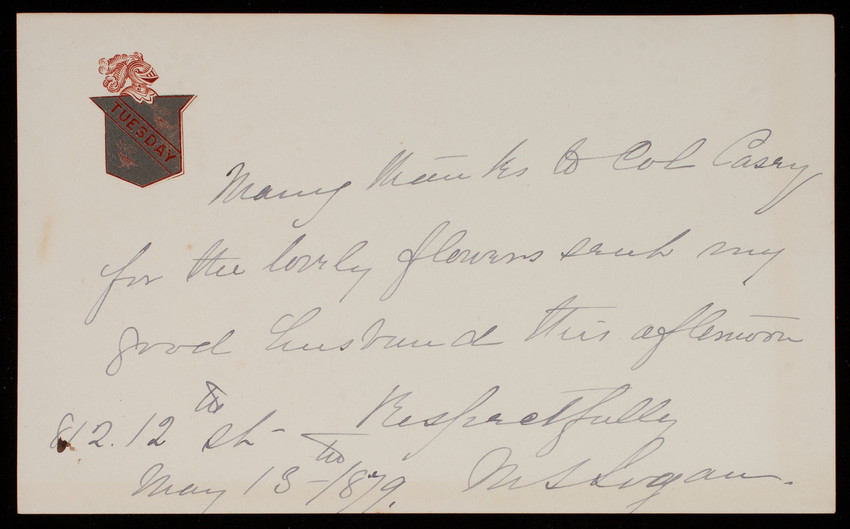 TUESDAY
Many thanks to Col Casey
for the lovely flowers sent my
good husband this afternoon
Respectfully
812. 12th st-
May 13th 1879. M S Logan.